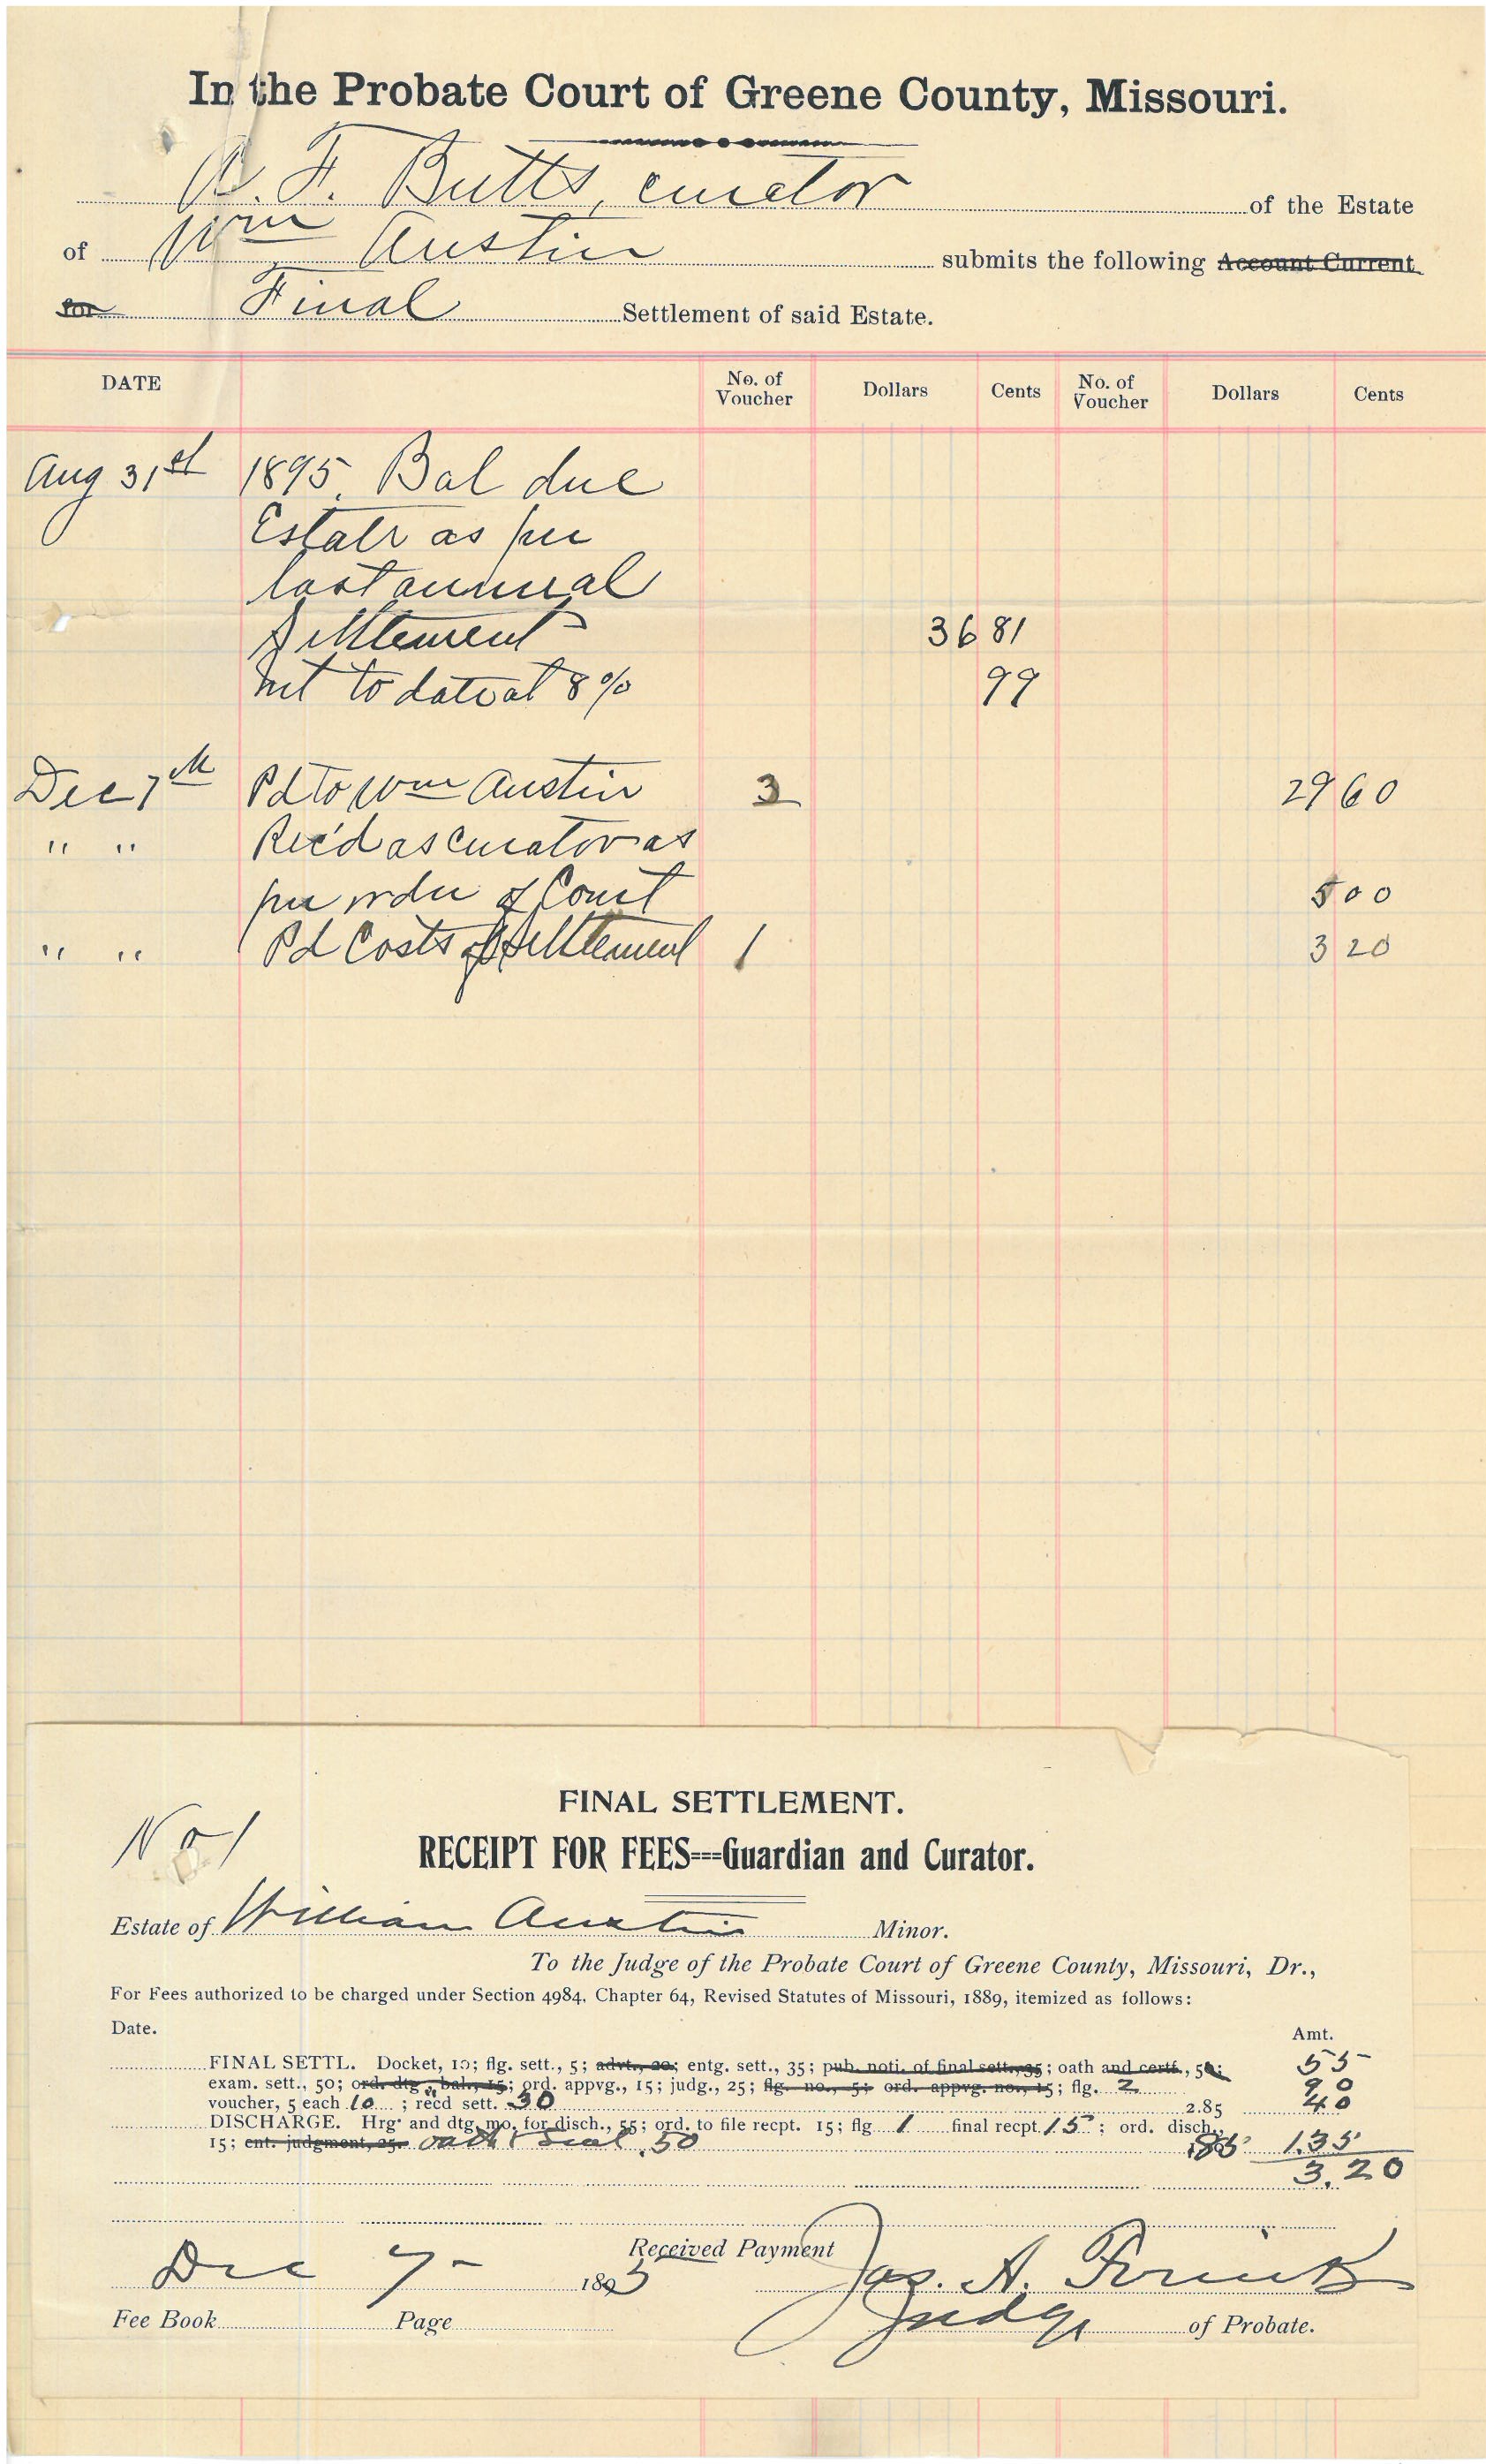 In the Probate Court of Greene County, Missouri.
B. F. Butts, curator of the Estate
of Wm Austin submits the following Account Current
for Final Settlement of said Estate.
DATE No. of Voucher Dollars Cents No. of Voucher Dollars Cents
Aug 31st 1895. Bal due
Estate as per
last annual
Settlement 36 81
Int to date at 8% 99
Dec 7th Pd to Wm Austin 3 29 60
" " Rec'd as curator as
per order of Court 5 00
" " Pd Costs of Settlement 1 3 20
FINAL SETTLEMENT.
No 1
RECEIPT FOR FEES---Guardian and Curator.
Estate of William Austin Minor.
To the Judge of the Probate Court of Greene County, Missouri, Dr.,
For Fees authorized to be charged under Section 4984, Chapter 64, Revised Statutes of Missouri, 1889, itemized as follows:
Date. Amt.
FINAL SETTL. Docket, 10; flg. sett., 5; advt., 20; entg. sett., 35; pub. noti. of final sett., 35; oath and certf., 50; 55
exam. sett., 50; ord. dtg. bal., 15; ord. appvg., 15; judg., 25; flg. no., 5; ord. appvg. no., 15; flg. 2 90
voucher, 5 each 10 ; recd sett. 30 2.85 40
DISCHARGE. Hrg. and dtg. mo. for disch., 55; ord. to file recpt. 15; flg 1 final recpt. 15 ; ord. disch.,
15; ent. judgment, 25. oath & seal .50 1.35
3.20
Received Payment
Dec 7- 1895 Jas. A. Frink
Judge of Probate.
Fee Book Page